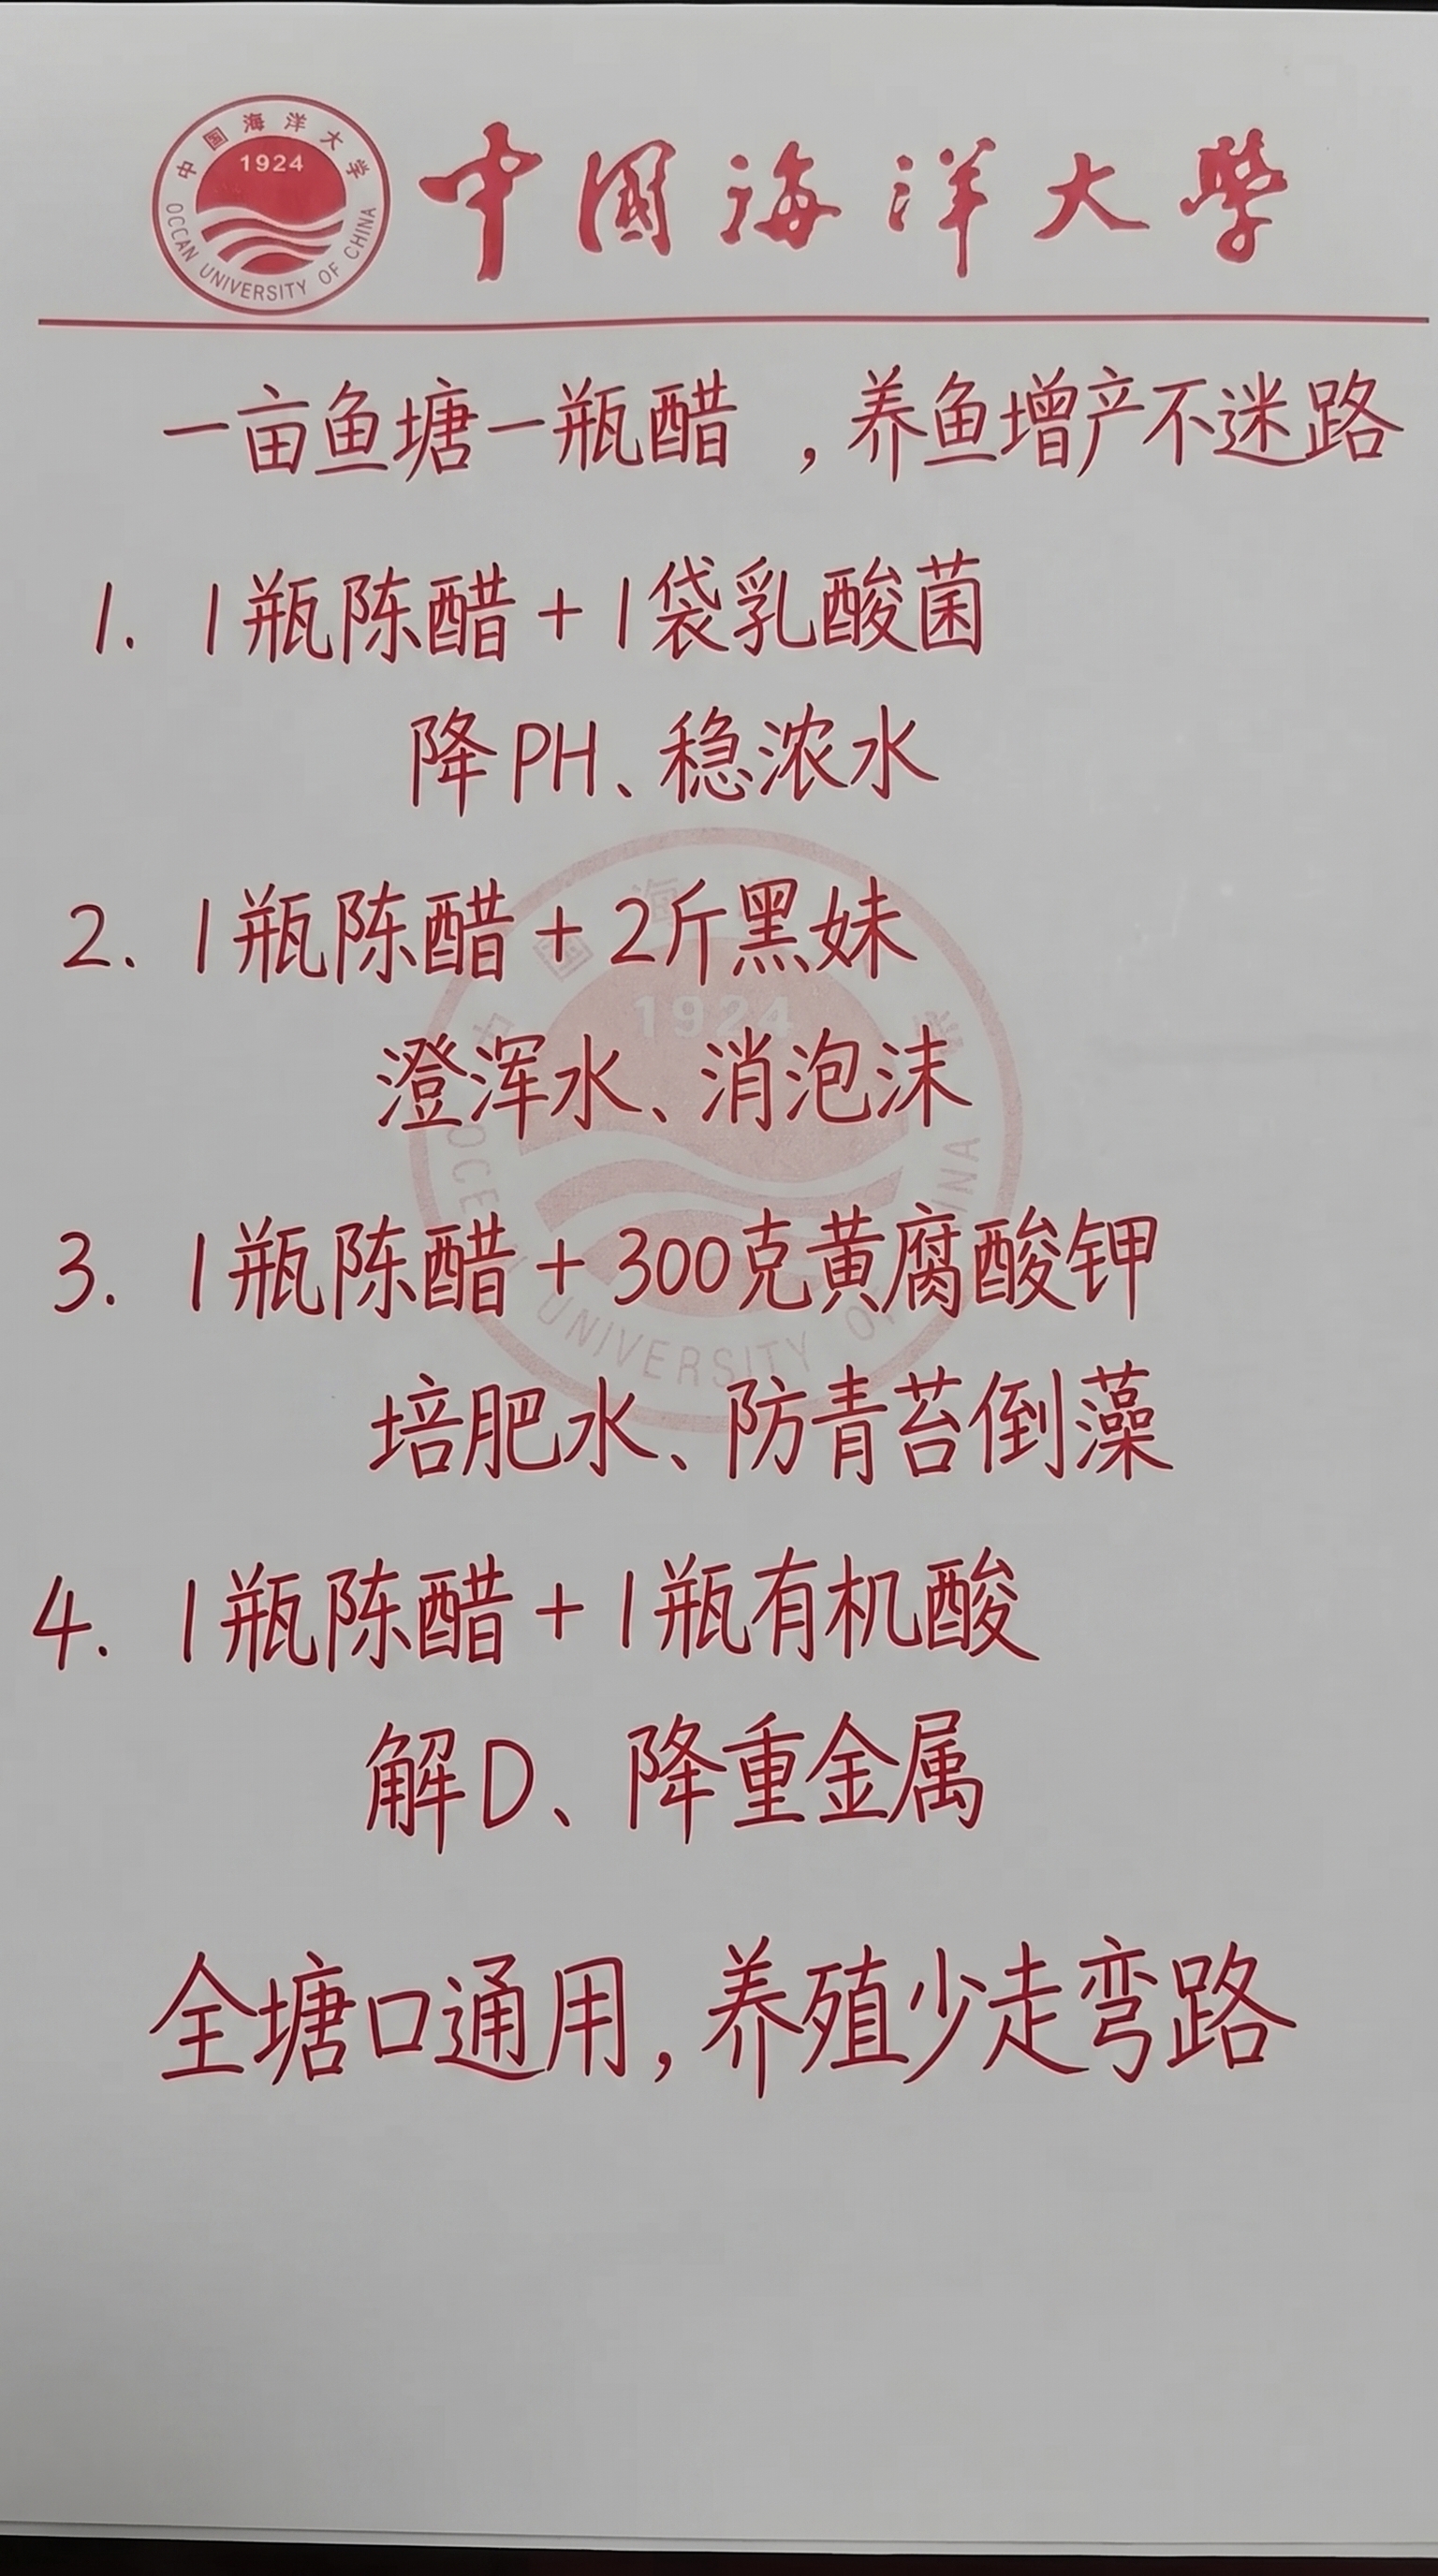 中国海洋大学
1924
OCCAN UNIVERSITY OF CHINA
中國海洋大學
一亩鱼塘一瓶醋，养鱼增产不迷路
1. 1瓶陈醋+1袋乳酸菌
降PH、稳浓水
2. 1瓶陈醋+2斤黑妹
澄浑水、消泡沫
3. 1瓶陈醋+300克黄腐酸钾
培肥水、防青苔倒藻
4. 1瓶陈醋+1瓶有机酸
解D、降重金属
全塘口通用，养殖少走弯路
1924
UNIVERSITY